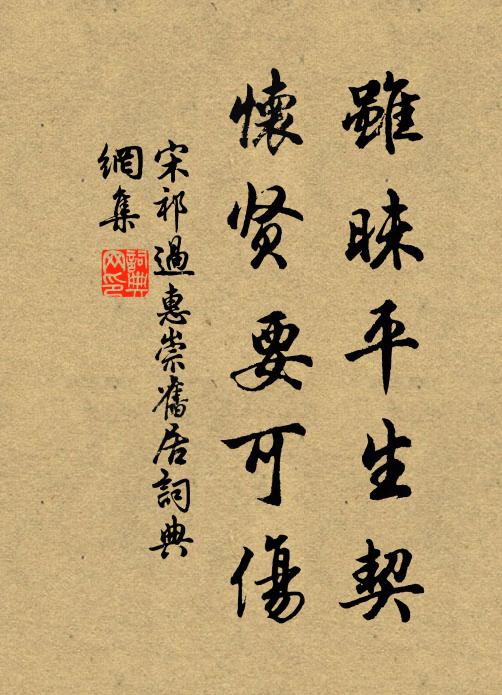 雖昧平生契
懷贤要可傷
宋祁過惠崇舊居詞典
網集
詞典网印